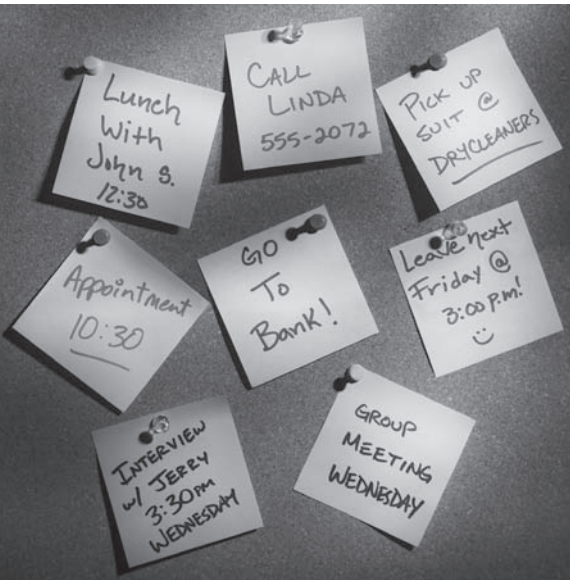 Lunch
With
John S.
12:30
CALL
LINDA
555-2072
PICK UP
SUIT @
DRYCLEANERS
Appointment
10:30
GO
To
Bank!
Leave next
Friday @
3:00 p.m!
INTERVIEW
w/ JERRY
3:30PM
WEDNESDAY
GROUP
MEETING
WEDNESDAY